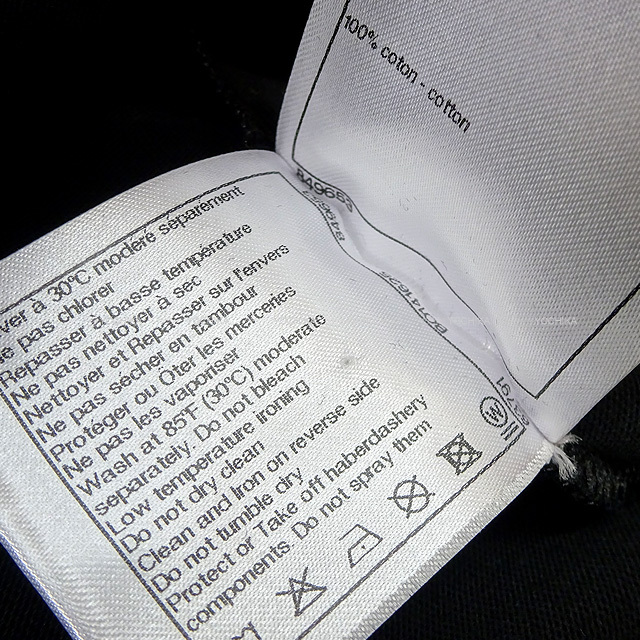 100% coton - cotton
ver à 30°C modéré séparément
e pas chlorer
Repasser à basse température
Ne pas nettoyer à sec
Nettoyer et Repasser sur l'envers
Ne pas sécher en tambour
Protéger ou Oter les merceries
Ne pas les vaporiser
Wash at 85°F (30°C) moderate
separately. Do not bleach
Low temperature ironing
Do not dry clean
Clean and Iron on reverse side
Do not tumble dry
Protect or Take off haberdashery
components. Do not spray them
W